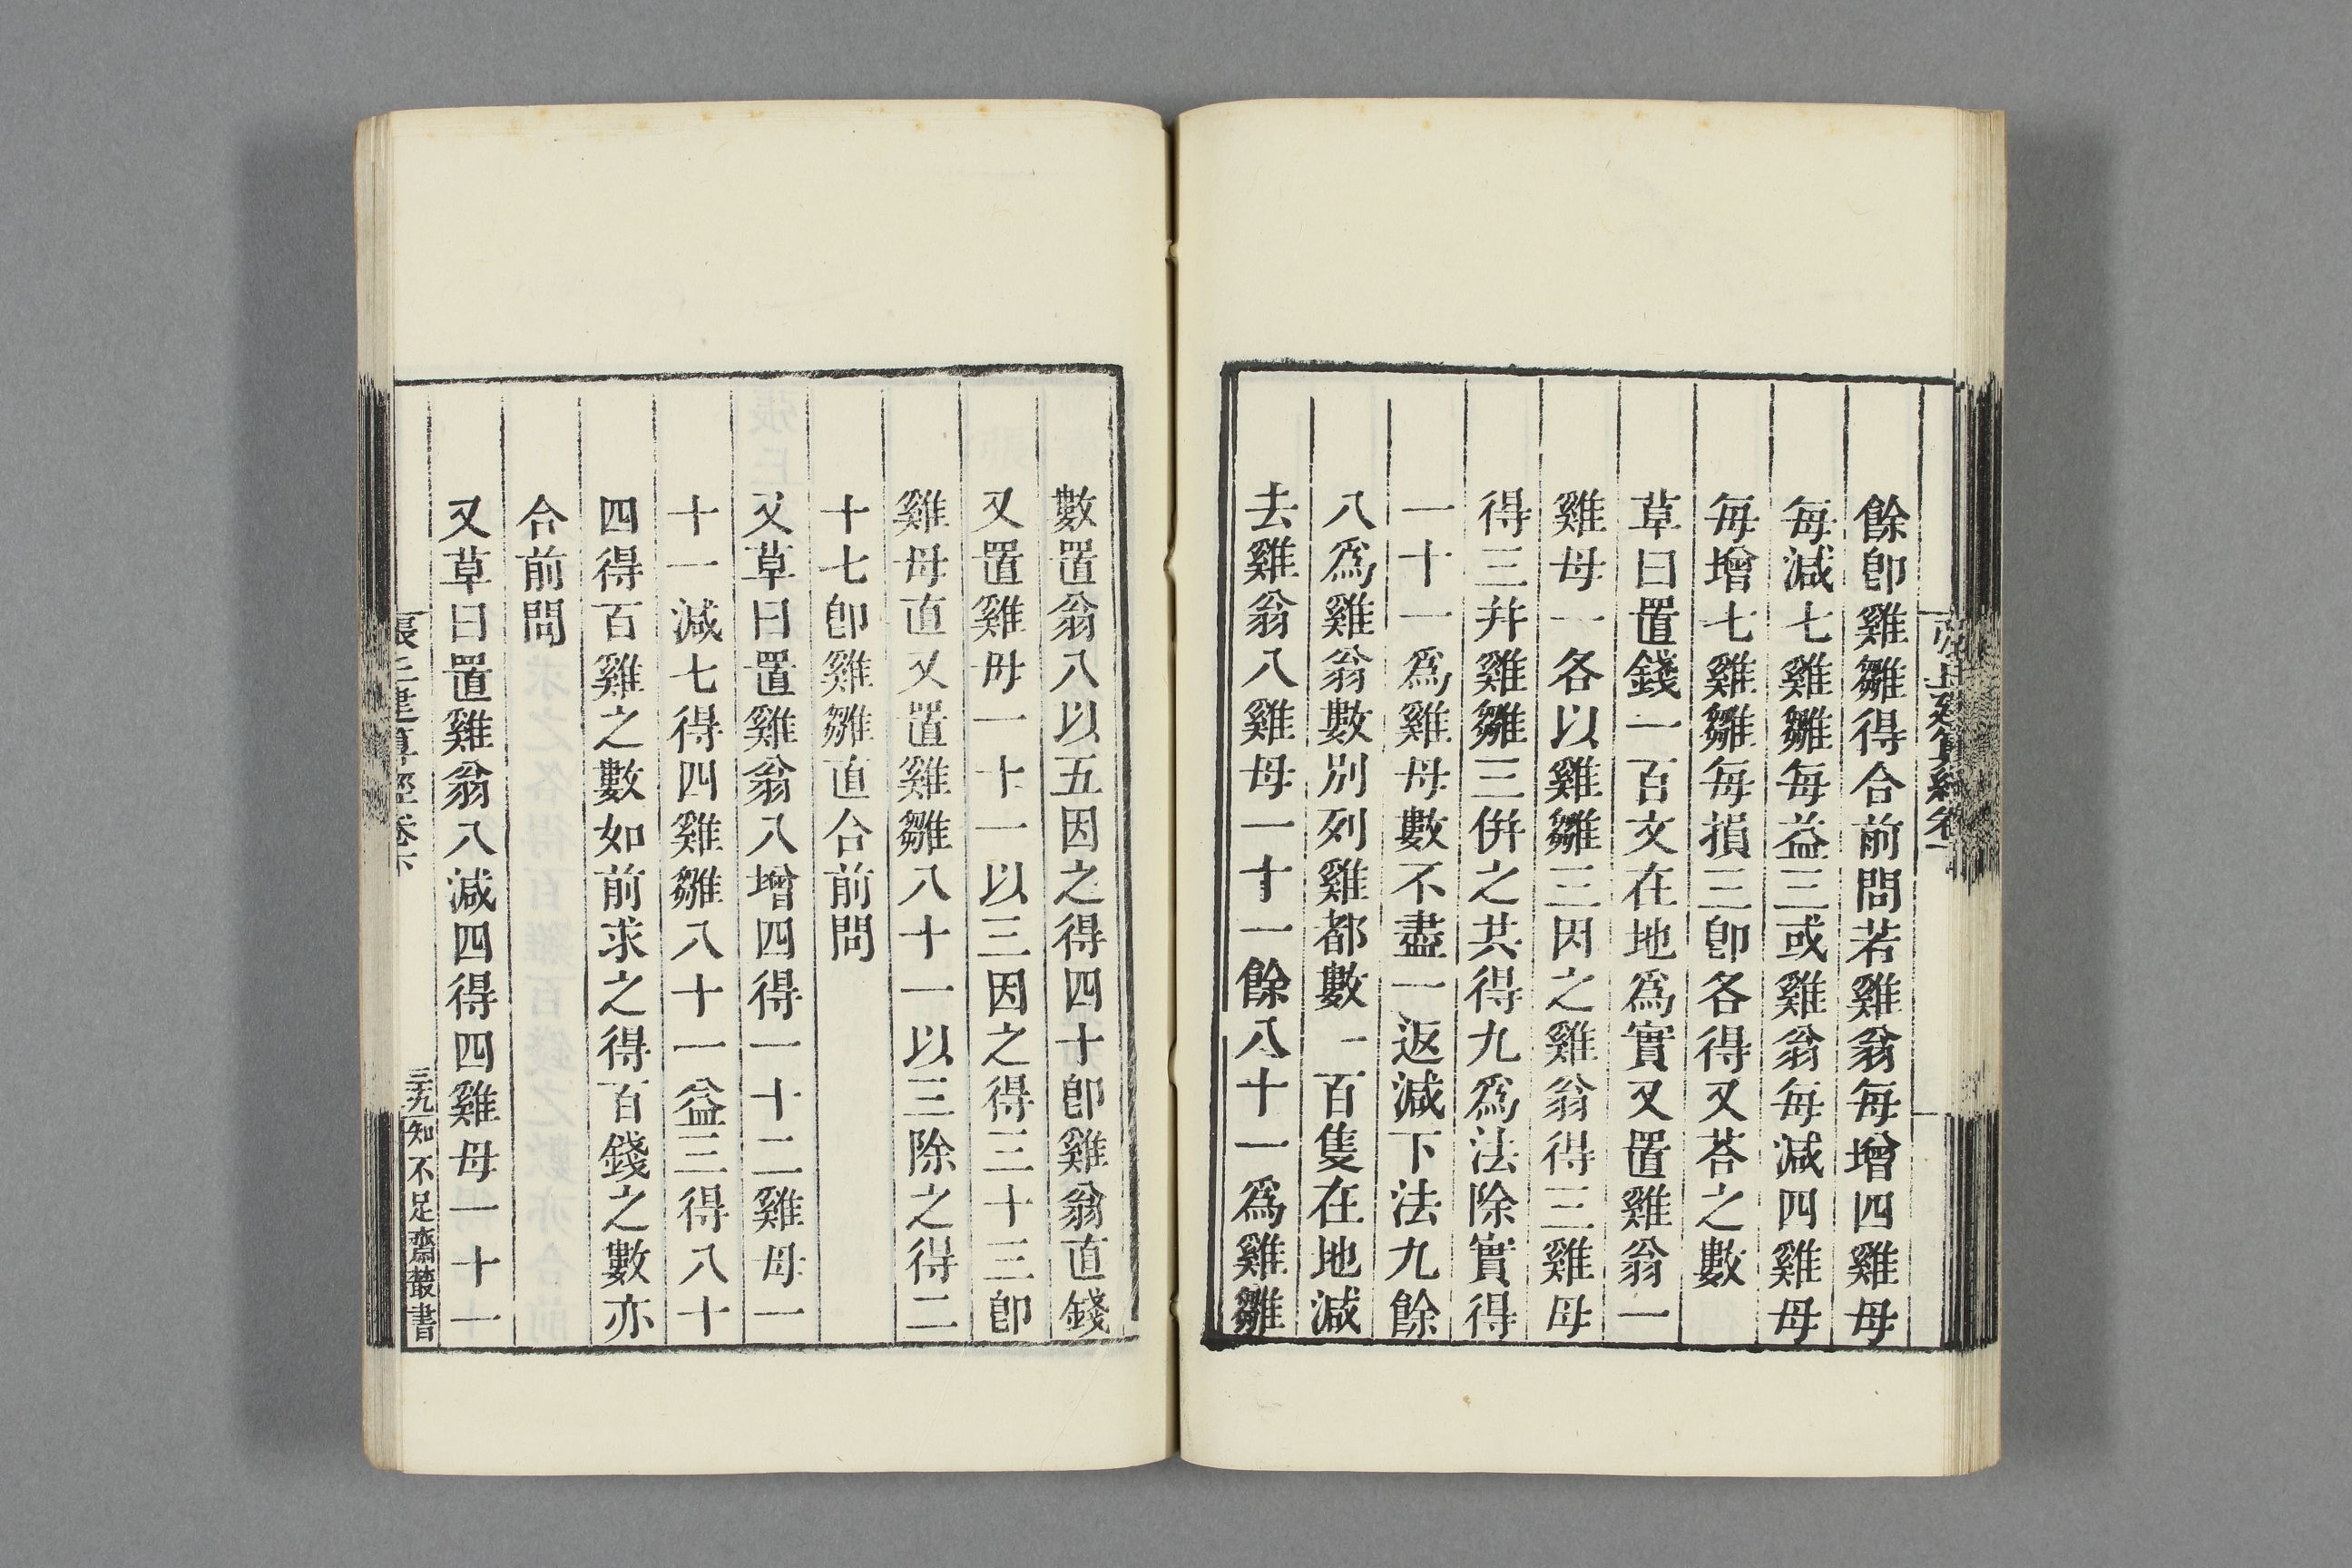 餘卽雞雛得合前問若雞翁每增四雞母
每減七雞雛每益三或雞翁每減四雞母
每增七雞雛每損三卽各得又荅之數
草曰置錢一百文在地爲實又置雞翁一
雞母一各以雞雛三因之雞翁得三雞母
得三并雞雛三併之共得九爲法除實得
一十一爲雞母數不盡一返減下法九餘
八爲雞翁數別列雞都數一百隻在地減
去雞翁八雞母一十一餘八十一爲雞雛
數置翁八以五因之得四十卽雞翁直錢
又置雞母一十一以三因之得三十三卽
雞母直又置雞雛八十一以三除之得二
十七卽雞雛直合前問
又草曰置雞翁八增四得一十二雞母一
十一減七得四雞雛八十一益三得八十
四得百雞之數如前求之得百錢之數亦
合前問
又草曰置雞翁八減四得四雞母一十一
張丘建算經卷下
三九
知不足齋叢書